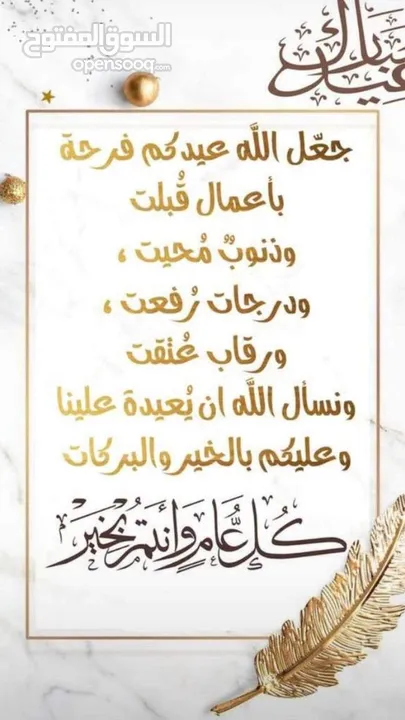 السوق المفتوح
opensooq.com
عيد مبارك
جعّل اللَّه عيدكم فرحة
بأعمال قُبلت
وذنوبٌ مُحيت ،
ودرجات رُفعت ،
ورقاب عُتقت
ونسأل اللَّه ان يُعيدة علينا
وعليكم بالخير والبركات
كُلُّ عَامٍ وَأَنْتُمْ بِخَيْر